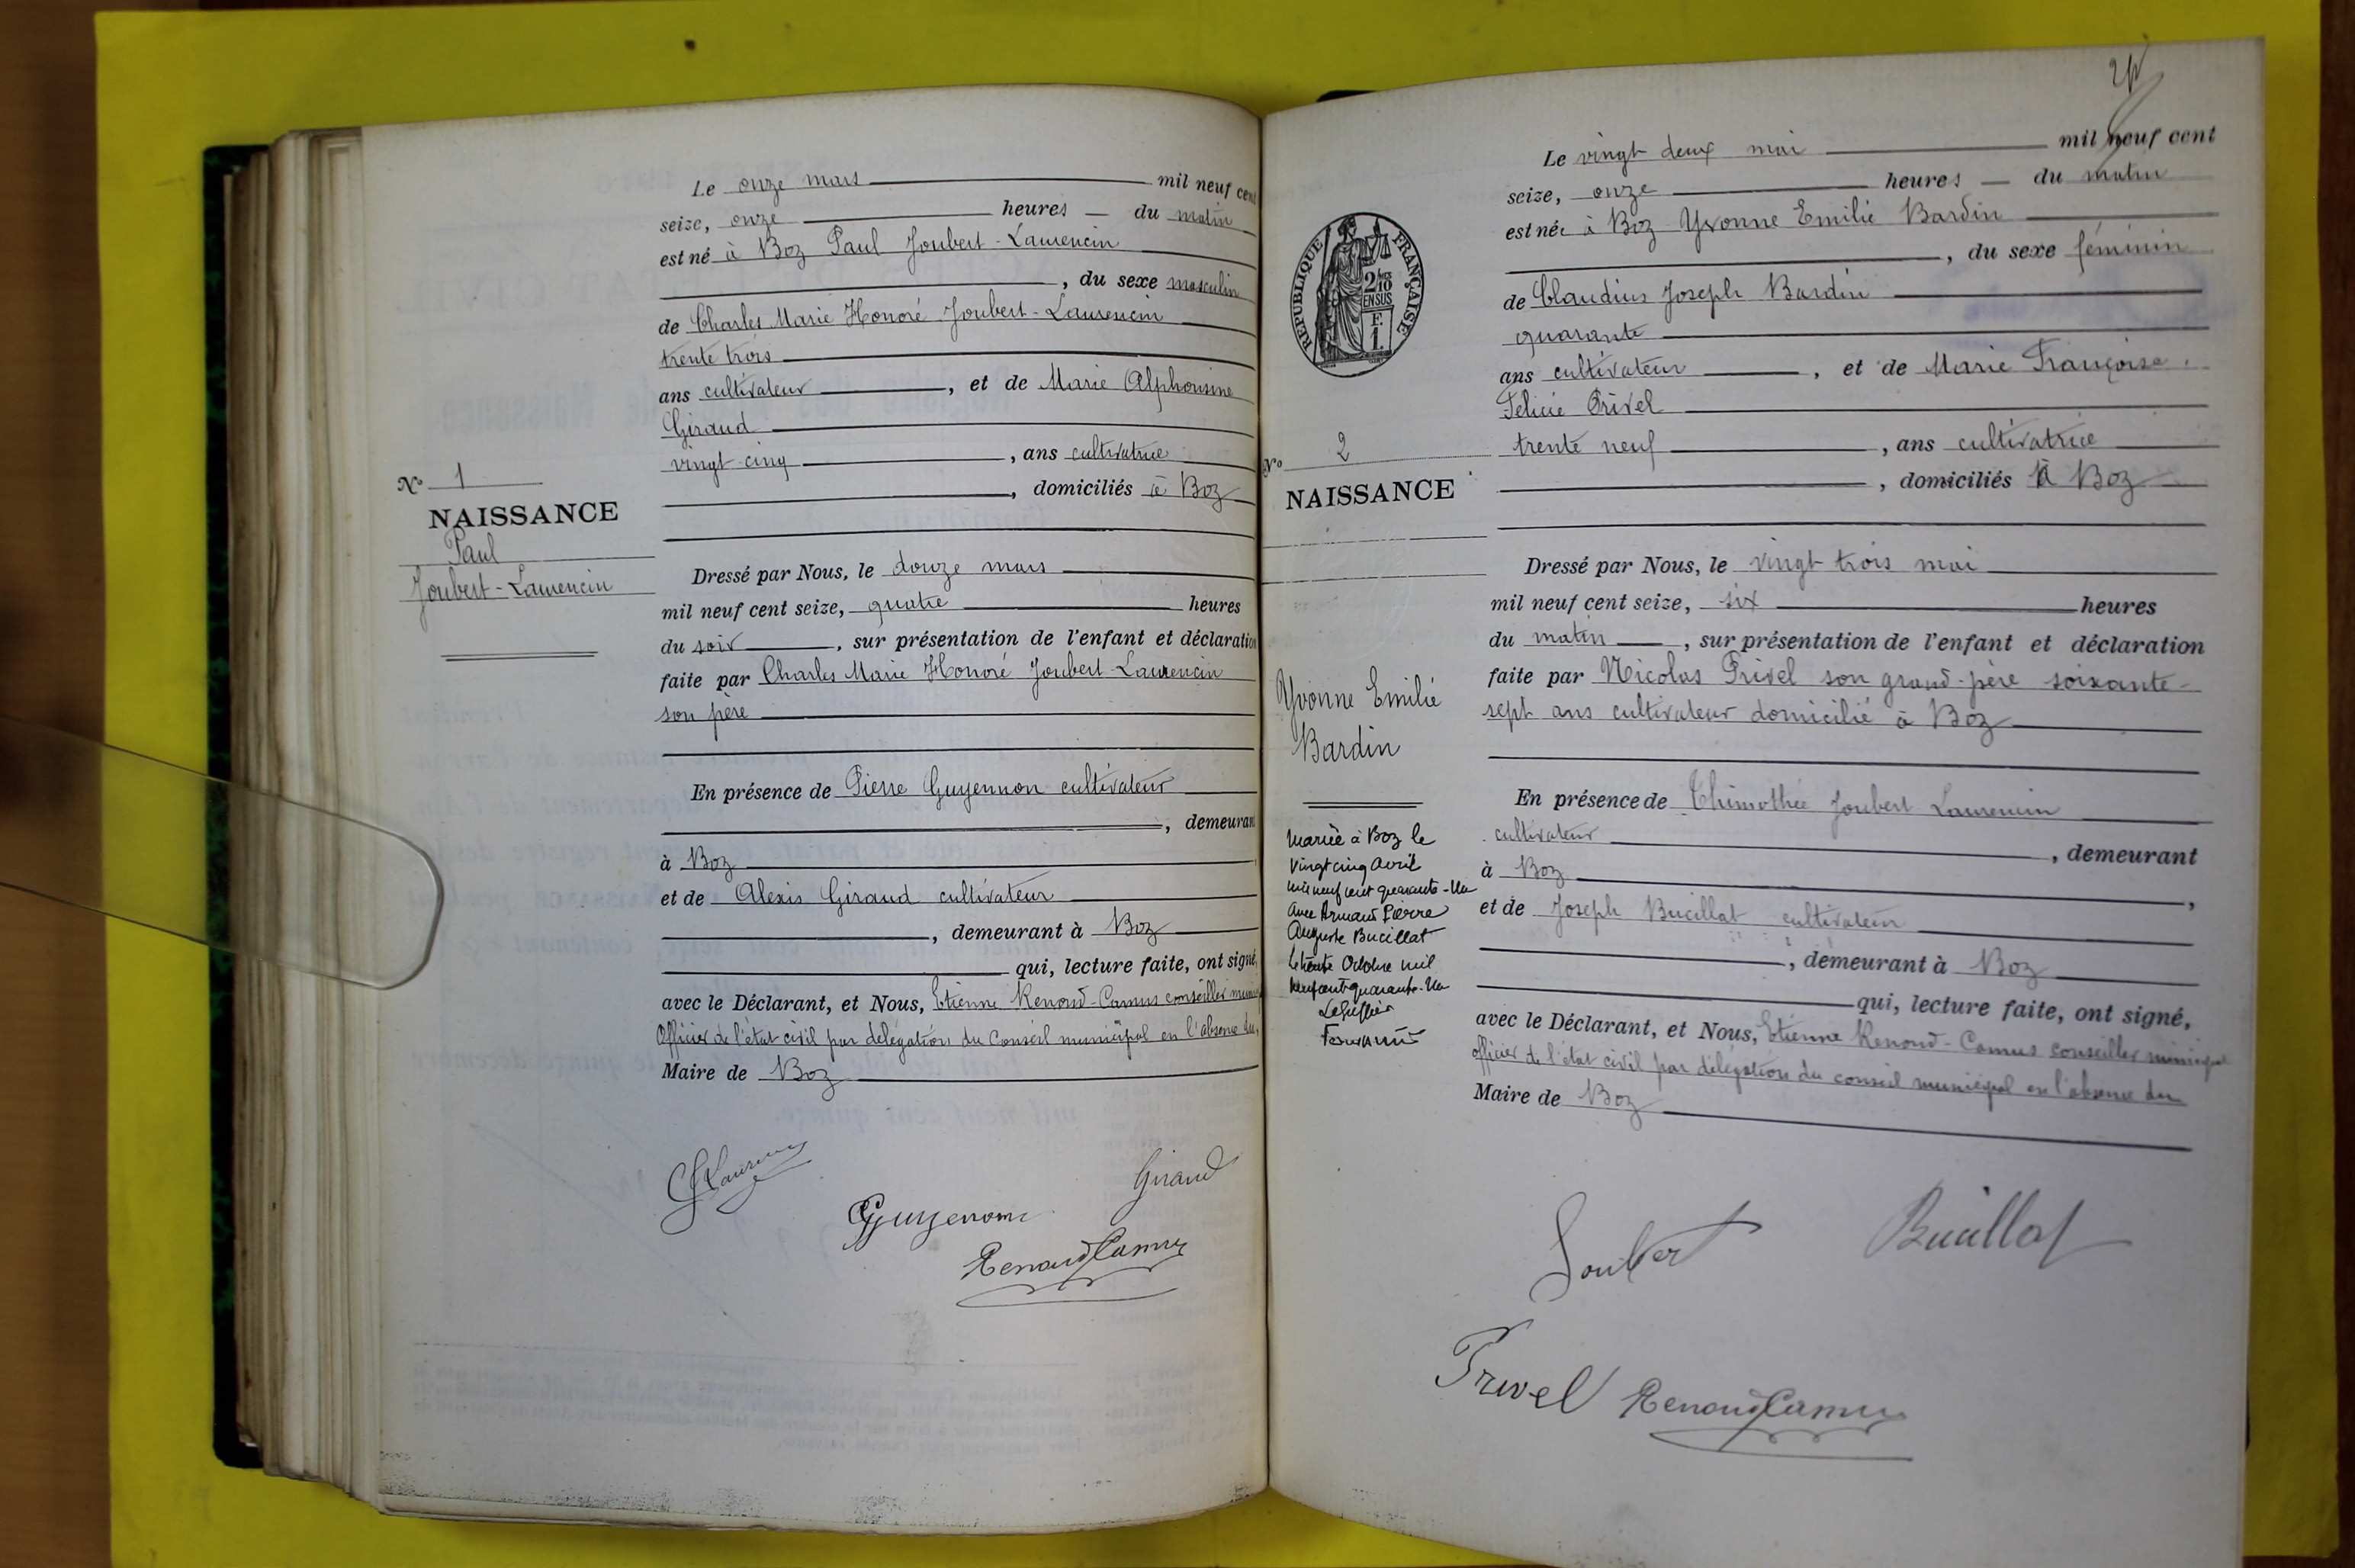 Le onze mars mil neuf cent
seize, onze heures — du matin
est né à Boz Paul Joubert-Laurencin
, du sexe masculin
de Charles Marie Honoré Joubert-Laurencin
trente trois
ans cultivateur , et de Marie Alphonsine
Giraud
vingt-cinq , ans cultivatrice
, domiciliés à Boz
N° 1
NAISSANCE
Paul
Joubert-Laurencin
Dressé par Nous, le douze mars
mil neuf cent seize, quatre heures
du soir , sur présentation de l'enfant et déclaration
faite par Charles Marie Honoré Joubert-Laurencin
son père
En présence de Pierre Guyennon cultivateur
, demeurant
à Boz
et de Alexis Giraud cultivateur
, demeurant à Boz
qui, lecture faite, ont signé
avec le Déclarant, et Nous, Etienne Renoud-Camus conseiller
Officier de l'état civil par délégation du Conseil municipal en l'absence du
Maire de Boz
Laurencin
Guyennon
Giraud
Renoud Camus
Le vingt deux mai mil neuf cent
seize, onze heures — du matin
est née à Boz Yvonne Emilie Bardin
, du sexe féminin
de Claudius Joseph Bardin
quarante
ans cultivateur , et de Marie Françoise
Félicie Privel
trente neuf , ans cultivatrice
, domiciliés à Boz
RÉPUBLIQUE FRANÇAISE
2/10
EN SUS
F.
1.
N° 2
NAISSANCE
Yvonne Emilie
Bardin
Mariée à Boz le
vingt cinq Avril
mil neuf cent quarante-un
avec Armand Pierre
Auguste Bucillat
le trente Octobre mil
neuf cent quarante-un
Le Greffier
Dressé par Nous, le vingt trois mai
mil neuf cent seize, six heures
du matin , sur présentation de l'enfant et déclaration
faite par Nicolas Privel son grand-père soixante-
sept ans cultivateur domicilié à Boz
En présence de Thimothée Joubert Laurencin
cultivateur , demeurant
à Boz ,
et de Joseph Bucillat cultivateur
, demeurant à Boz
qui, lecture faite, ont signé,
avec le Déclarant, et Nous, Etienne Renoud-Camus conseiller municipal
officier de l'état civil par délégation du conseil municipal en l'absence du
Maire de Boz
Joubert
Bucillat
Privel
Renoud Camus